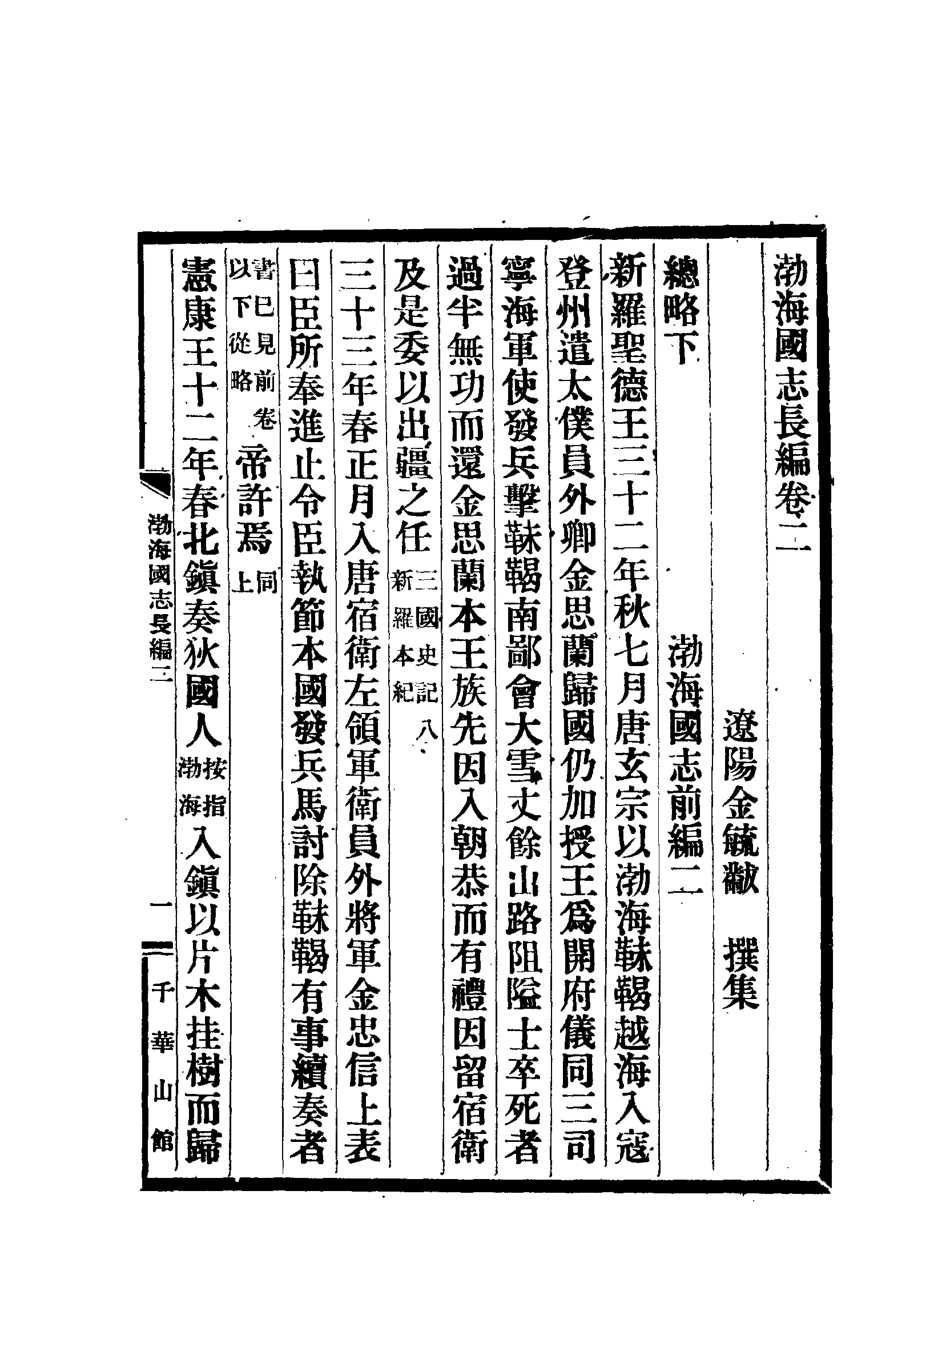 渤海國志長編卷二
遼陽金毓黻　撰集
總略下　渤海國志前編二
新羅聖德王三十二年秋七月唐玄宗以渤海靺鞨越海入寇
登州遣太僕員外卿金思蘭歸國仍加授王爲開府儀同三司
寧海軍使發兵擊靺鞨南鄙會大雪丈餘山路阻隘士卒死者
過半無功而還金思蘭本王族先因入朝恭而有禮因留宿衛
及是委以出疆之任三國史記八新羅本紀
三十三年春正月入唐宿衛左領軍衛員外將軍金忠信上表
曰臣所奉進止令臣執節本國發兵馬討除靺鞨有事續奏者
書已見前卷以下從略帝許焉同上
憲康王十二年春北鎭奏狄國人按指渤海入鎭以片木挂樹而歸
渤海國志長編二　一　千華山館